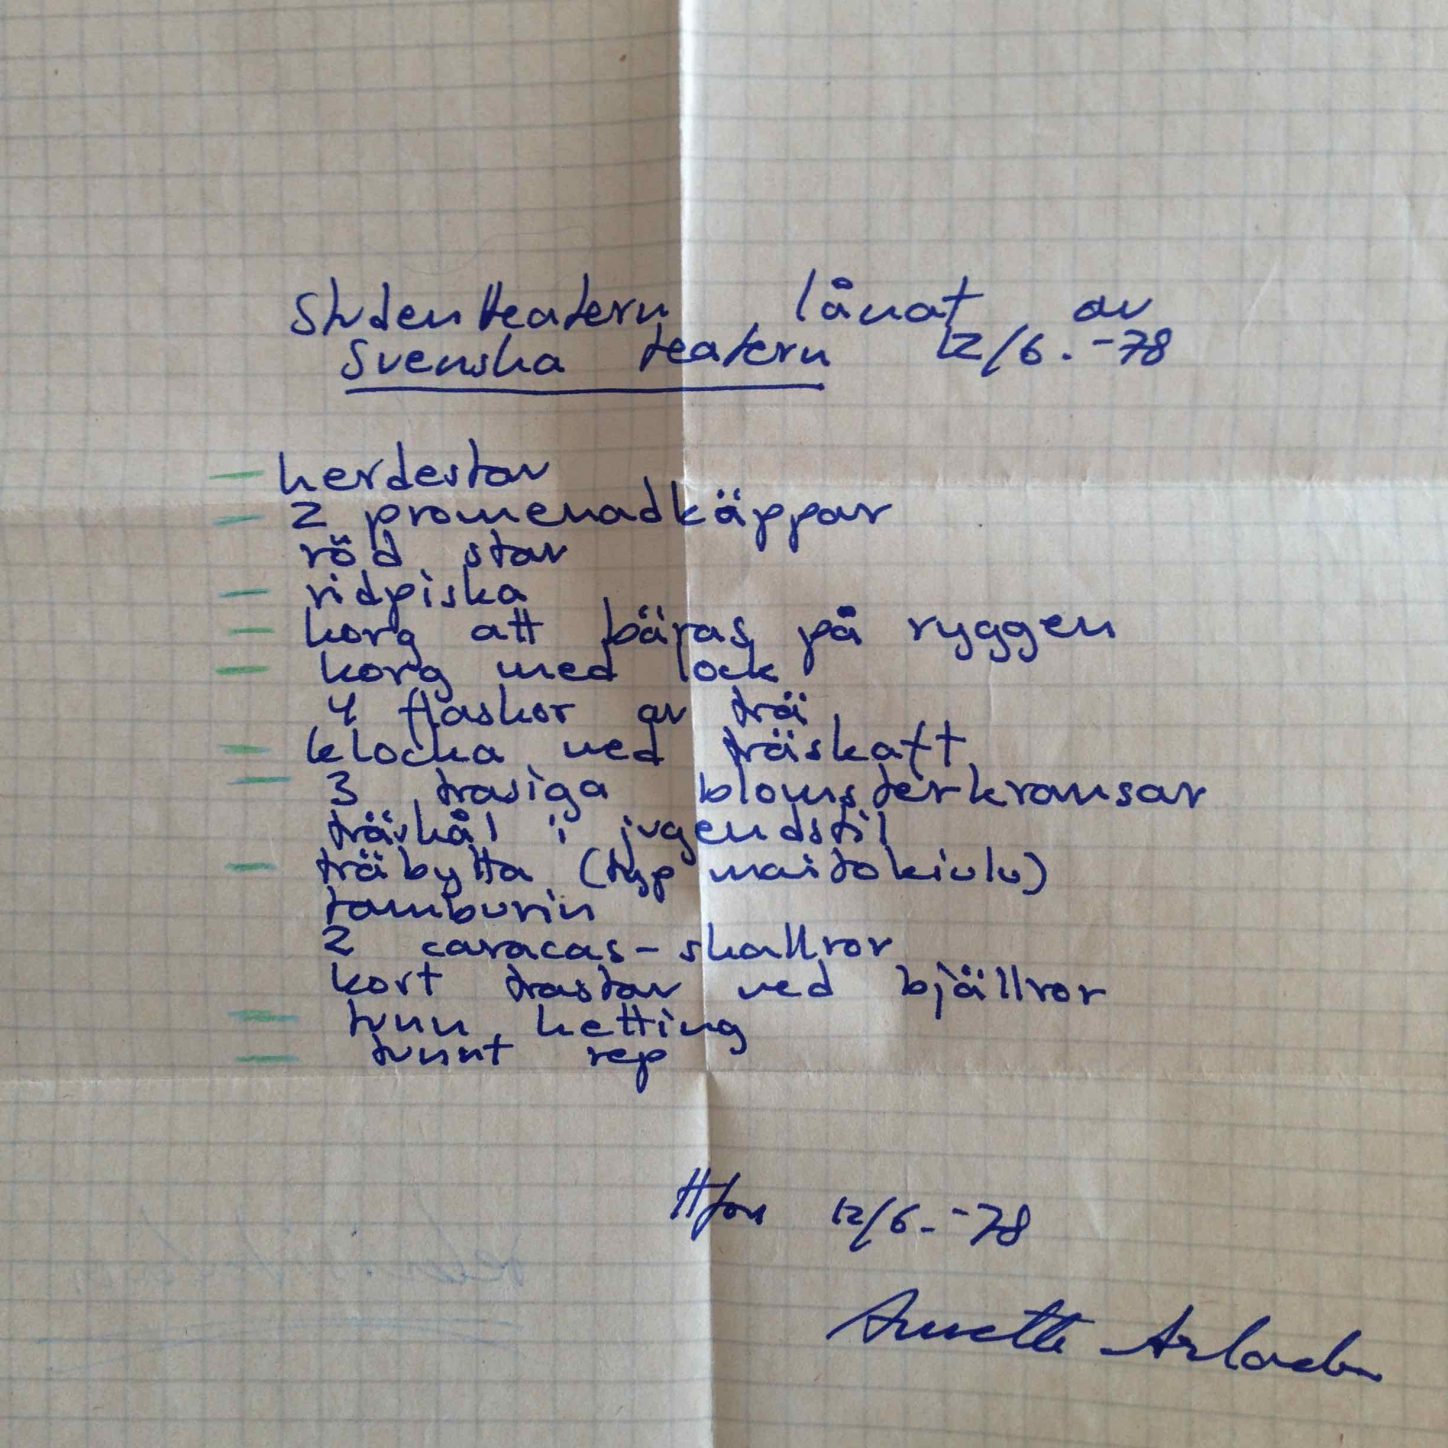 Studentteatern lånat av
Svenska teatern 12/6.-78
herdestav
2 promenadkäppar
röd stav
ridpiska
korg att bäras på ryggen
korg med lock
4 flaskor av trä
klocka med träskaft
3 trasiga blomsterkransar
träskål i jugendstil
träbytta (typ maitokiulu)
tamburin
2 caracas-skallror
kort trästav med bjällror
tunn ketting
tunnt rep
Hfors 12/6.-78
Annette Arlander